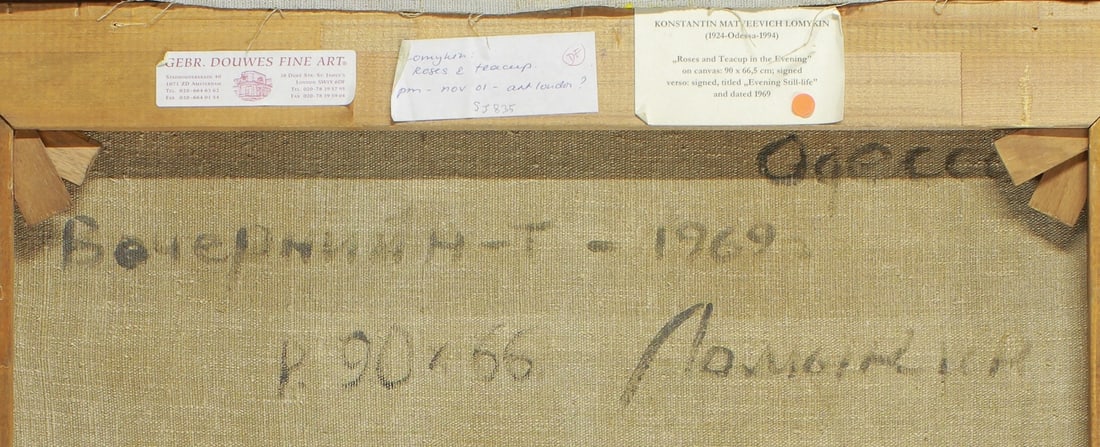 GEBR. DOUWES FINE ART
STADHOUDERSKADE 40
1071 ZD AMSTERDAM
TEL. 020-664 63 62
FAX 020-664 01 54
38 DUKE STR. ST. JAMES'S
LONDON SW1Y 6DF
Lomykin:
Roses & teacup.
pm - nov 01 - art london?
DF
KONSTANTIN MATVEEVICH LOMYKIN
(1924-Odessa-1994)
„Roses and Teacup in the Evening"
on canvas: 90 x 66,5 cm; signed
verso: signed, titled „Evening Still-life"
and dated 1969
Одесса
Вечерний Н-Т - 1969г
р. 90 x 66 Ломыкин